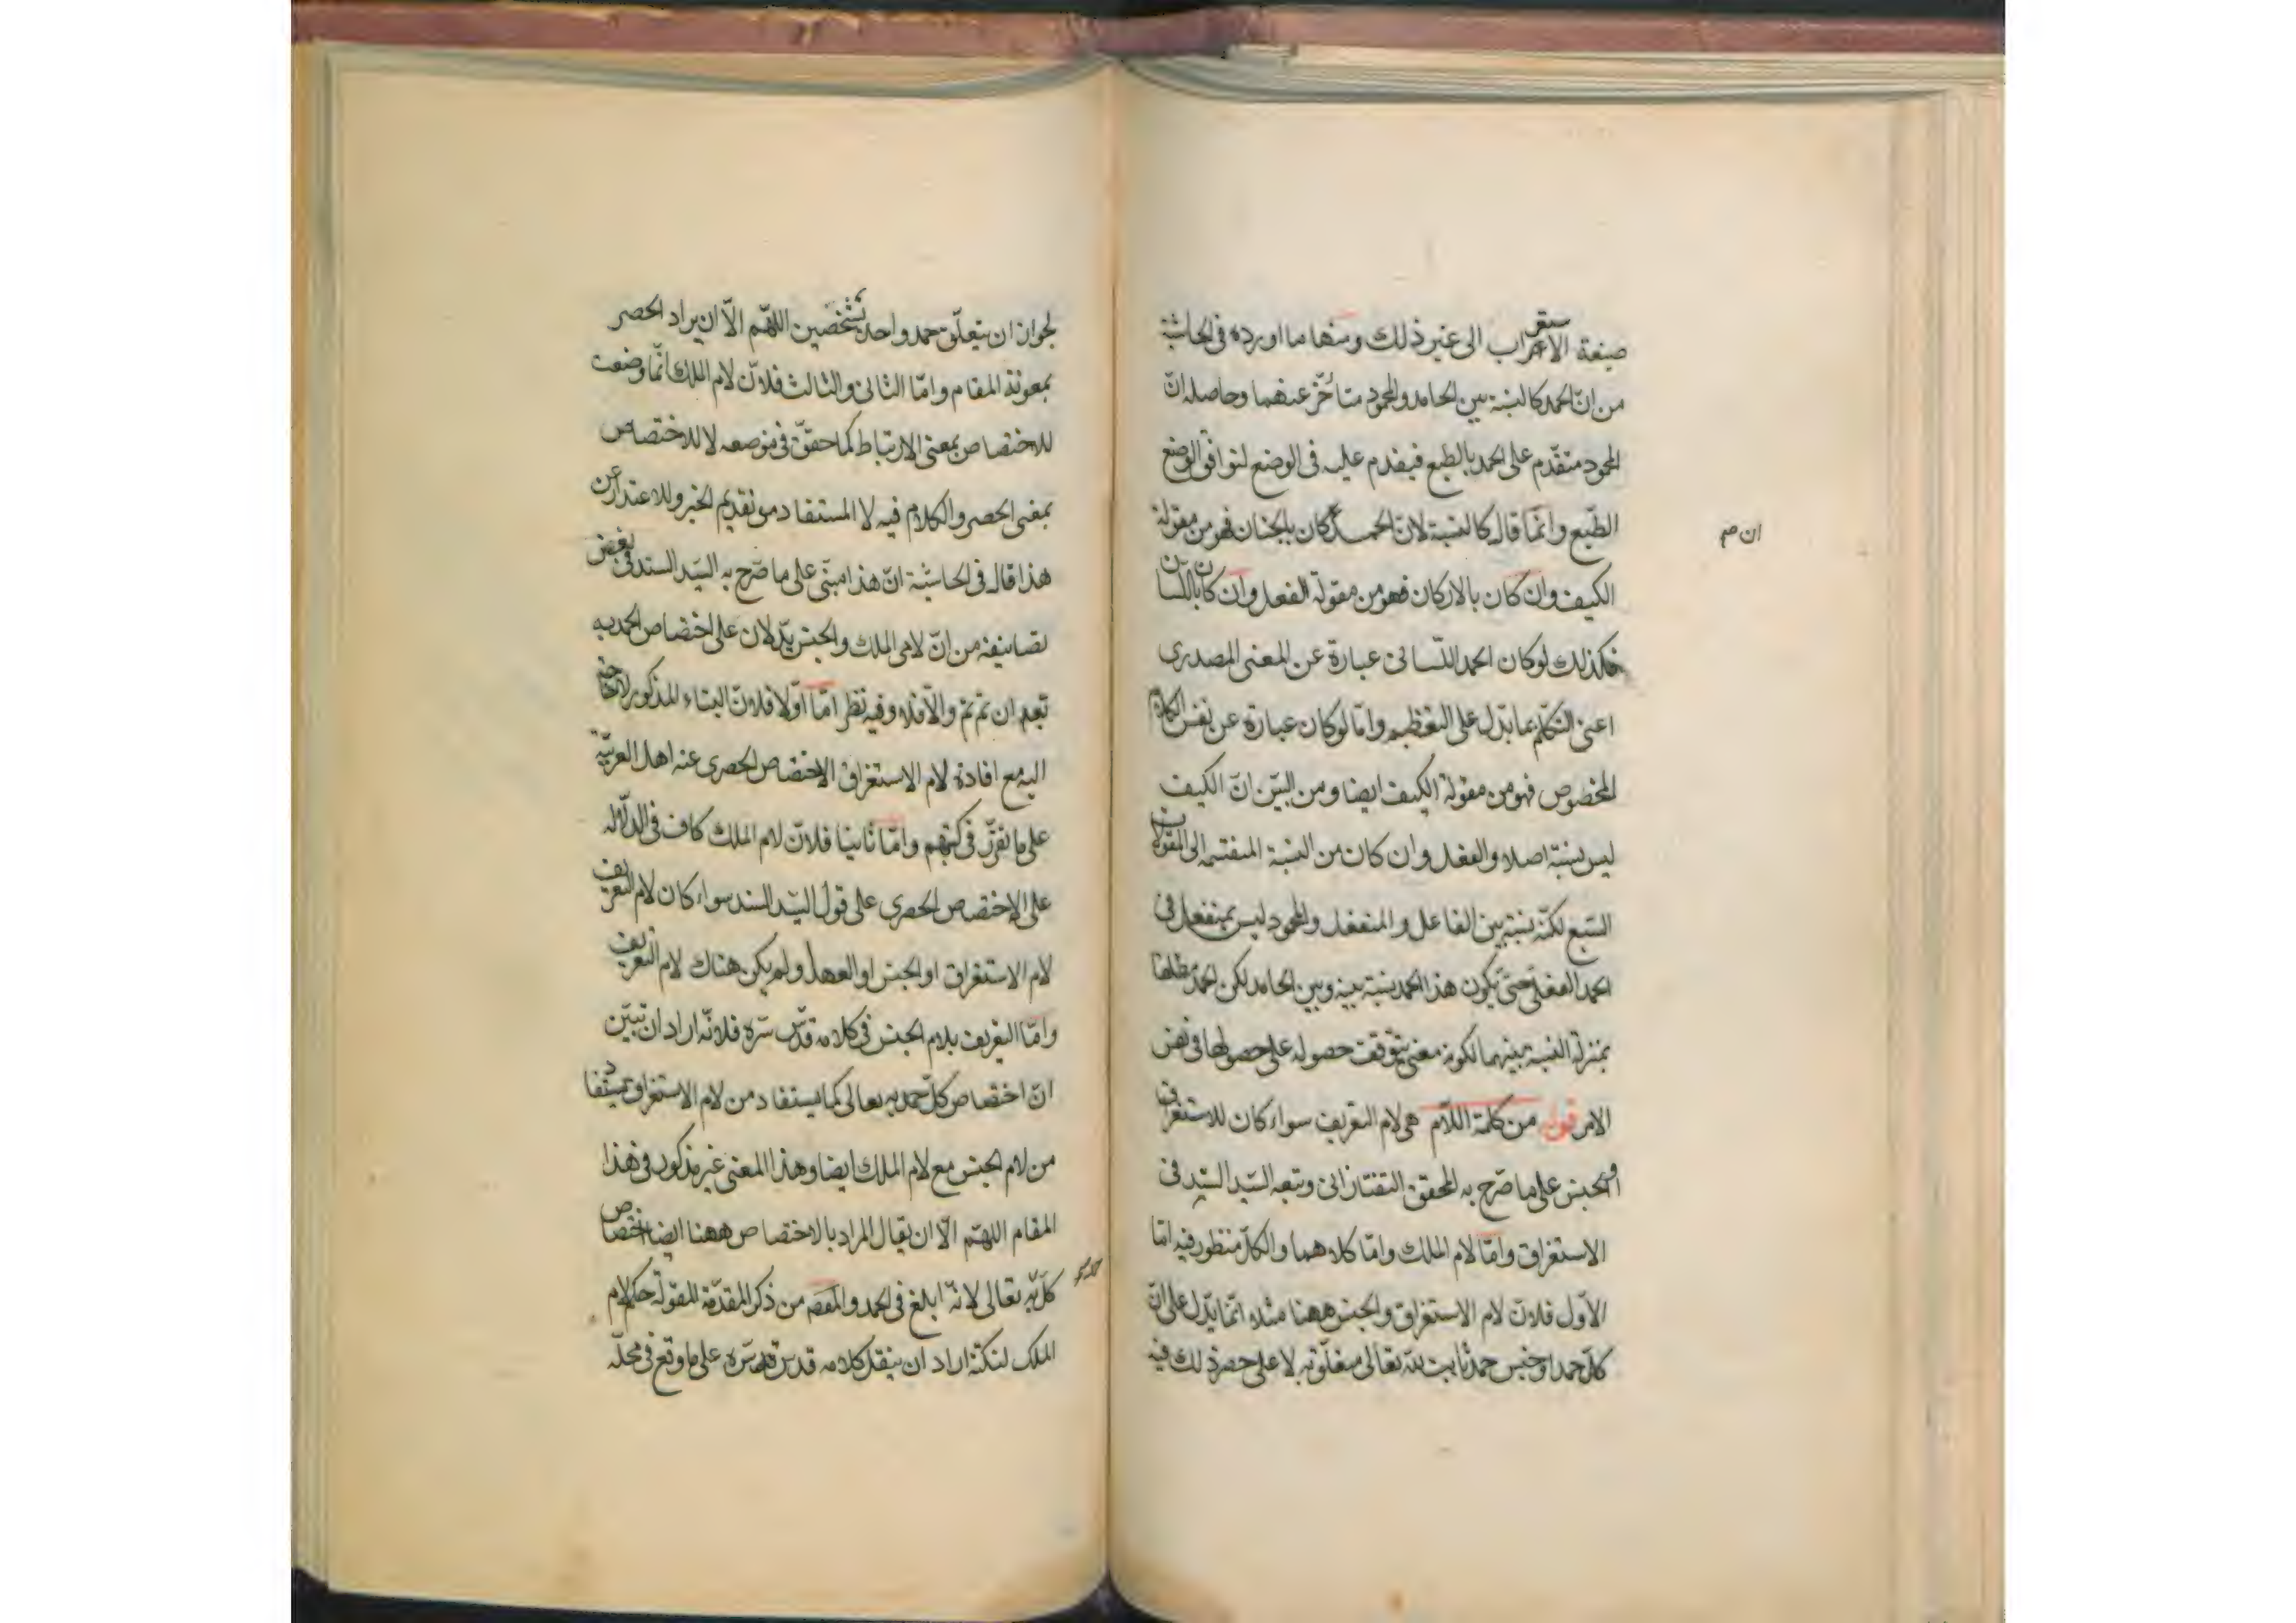 صيغة الاعراب الى غير ذلك ومنها ما اورده فى الحاشية
من انّ الحمد كالنسبة بين الحامد والمحمود متأخّر عنهما وحاصله انّ
المحمود متقدّم على الحمد بالطبع فيقدم عليه فى الوضع لتوافق الوضع
الطّبع وانّما قال كالنسبة لانّ الحمد كان بالجنان فهو من مقولة
ان صح
الكيف وان كان بالاركان فهو من مقولة الفعل وان كان باللّسان
فكذلك لو كان الحمد اللّسانى عبارة عن المعنى المصدرى
اعنى التكلّم بما يدّل على التعظيم وامّا لو كان عبارة عن نفس الكلام
المخصوص فهو من مقولة الكيف ايضا ومن البيّن انّ الكيف
ليس نسبة اصلا والفعل وان كان من النسبة المنقسمه الى المقولات
السّبع لكنّه نسبة بين الفاعل والمنفعل والمحمود ليس بمنفعل فى
الحمد الفعلى حتّى يكون هذا الحمد نسبة بينه وبين الحامد لكن الحمد مطلقا
بمنزلة النسبة بينهما لكونه معنى يتوقف حصوله على حصولهما فى نفس
الامر قوله من كلمة اللّام هى لام التعريف سواء كان للاستغراق
او الجنس على ما صّرح به المحقق التفتازانى وتبعه السّيد السّند فى
الاستغراق وامّا لام الملك وامّا كلاهما والكلّ منظور فيه امّا
الاوّل فلانّ لام الاستغراق والجنس ههنا مثلا انّما يدّل على انّ
كلّ حمد او جنس حمد ثابت للّه تعالى متعلّق به لا على حصر ذلك فيه
لجواز ان يتعلّق حمد واحد بشخصين اللهّم الاّ ان يراد الحصر
بمعونة المقام وامّا الثانى والثالث فلانّ لام الملك انّما وضعت
للاختصاص بمعنى الارتباط كما حقّق فى موضعه لا للاختصاص
بمعنى الحصر والكلام فيه لا المستفاد من تقديم الخبر وللاعتذار عن
هذا قال فى الحاشية انّ هذا مبنّى على ما صّرح به السّيد السند فى بعض
تصانيفه من انّ لامى الملك والجنس يدّلان على اختصاص الحمد به
تعالى ان تم تم والّا فلا وفيه نظر امّا اوّلا فلانّ البناء المذكور لا يحتاج
اليه مع افادة لام الاستغراق الاختصاص الحصرى عند اهل العربيّة
على ما تقرّر فى كتبهم وامّا ثانيا فلانّ لام الملك كاف فى الدلالة
على الاختصاص الحصرى على قول السّيد السند سواء كان لام التعريف
لام الاستغراق او الجنس او العهد او لم يكن هناك لام التعريف
وامّا التعريف بلام الجنس فى كلامه قدّس سّره فلانّه اراد ان تبيّن
انّ اختصاص كلّ حمد به تعالى كما يستفاد من لام الاستغراق يستفاد
من لام الجنس مع لام الملك ايضا وهذا المعنى غير مذكور فى هذا
المقام اللهّم الاّ ان يقال المراد بالاختصاص ههنا ايضا اختصاص
كلّ به تعالى لانّه ابلغ فى الحمد والمقصّ من ذكر المقدّمة حكم لام
الملك لنكتة اراد ان ينقل كلامه قدس سّره على ما وقع فى محلّه